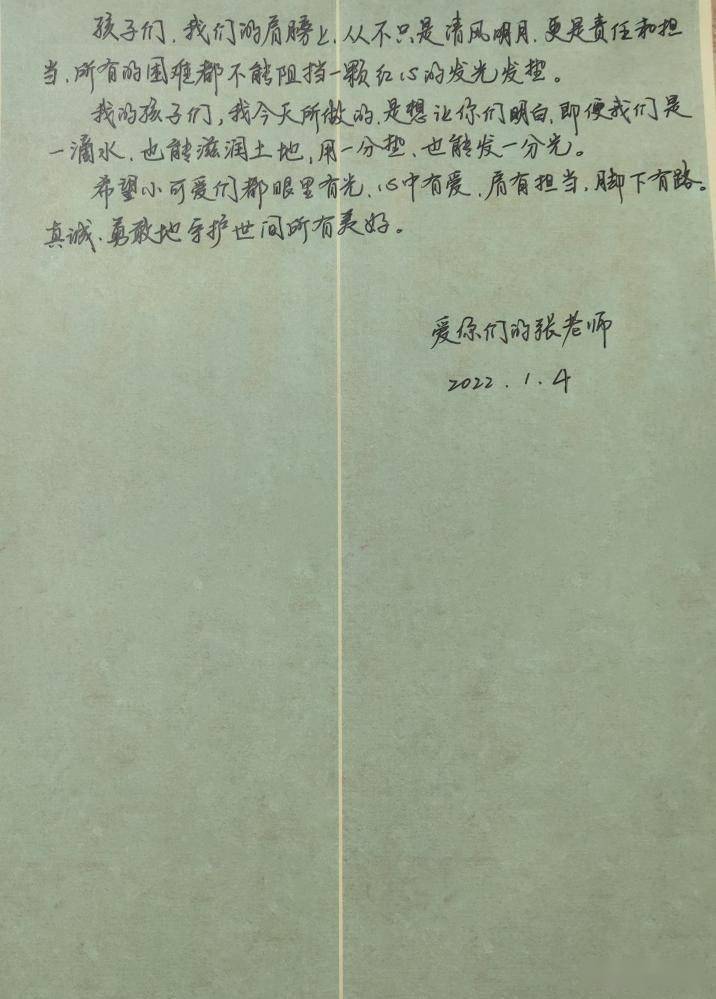 孩子们，我们的肩膀上，从不只是清风明月，更是责任和担
当，所有的困难都不能阻挡一颗红心的发光发热。
我的孩子们，我今天所做的，是想让你们明白，即便我们是
一滴水，也能滋润土地，用一分热，也能发一分光。
希望小可爱们都眼里有光，心中有爱，肩有担当，脚下有路。
真诚、勇敢地守护世间所有美好。
爱你们的张老师
2022.1.4